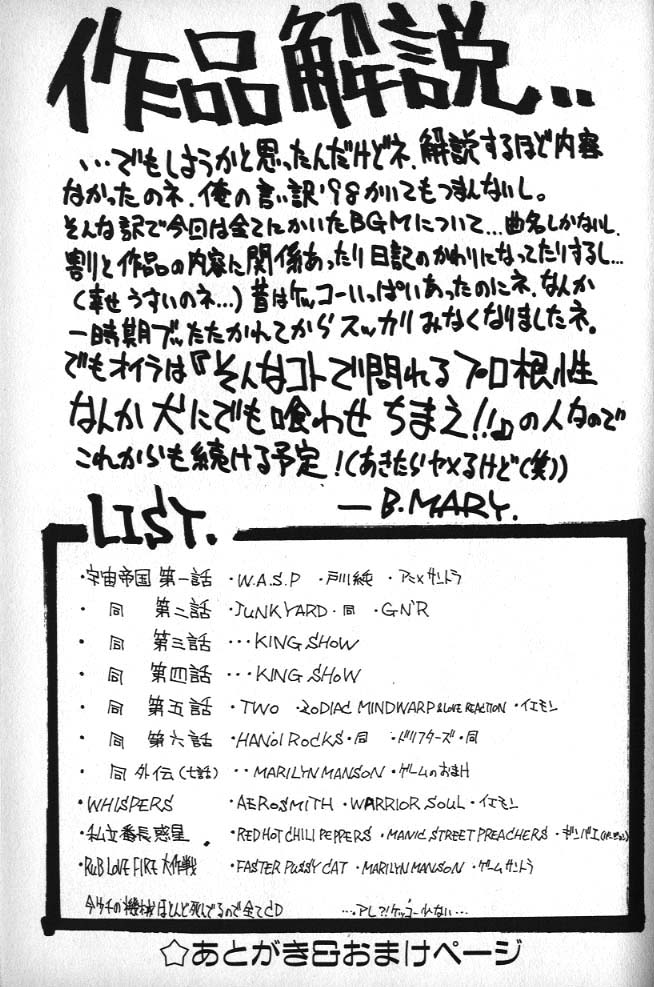 作品解説‥
…でもしようかと思ったんだけどネ、解説するほど内容
なかったのネ、俺の言い訳'98かいてもつまんないし。
そんな訳で今回は全てにかいたBGMについて…曲名しかないし、
割と作品の内容に関係あったり日記のかわりになってたりするし…
(幸せうすいのネ…)昔はケッコーいっぱいあったのにネ、なんか
一時期ブッたたかれてからスッカリみなくなりましたネ。
でもオイラは『そんなコトで問れるプロ根性
なんか犬にでも喰わせちまえ!!』の人なので
これからも続ける予定!(あきたらヤメるけど(笑))
―B.MARY.
LIST.
・宇宙帝国 第一話 ・W.A.S.P ・戸川純 ・アニメサントラ
・同 第二話 ・JUNKYARD ・同 ・GN'R
・同 第三話 …KING SHOW
・同 第四話 …KING SHOW
・同 第五話 ・TWO ・ZODIAC MINDWARP & LOVE REACTION ・イエモン
・同 第六話 ・HANOI ROCKS ・同 ・ドリフターズ ・同
・同 外伝(七話) ‥MARILYN MANSON ・ゲームのおまけ
・WHISPERS ・AEROSMITH ・WARRIOR SOUL ・イエモン
・私立番長惑星 ・RED HOT CHILI PEPPERS ・MANIC STREET PREACHERS
・RUB LOVE FIRE 大作戦 ・FASTER PUSSY CAT ・MARILYN MANSON ・ゲームサントラ
今ウチの機械ほとんど死んでるので全てCD …アレ?!ケッコー少ない…
☆あとがき&おまけページ